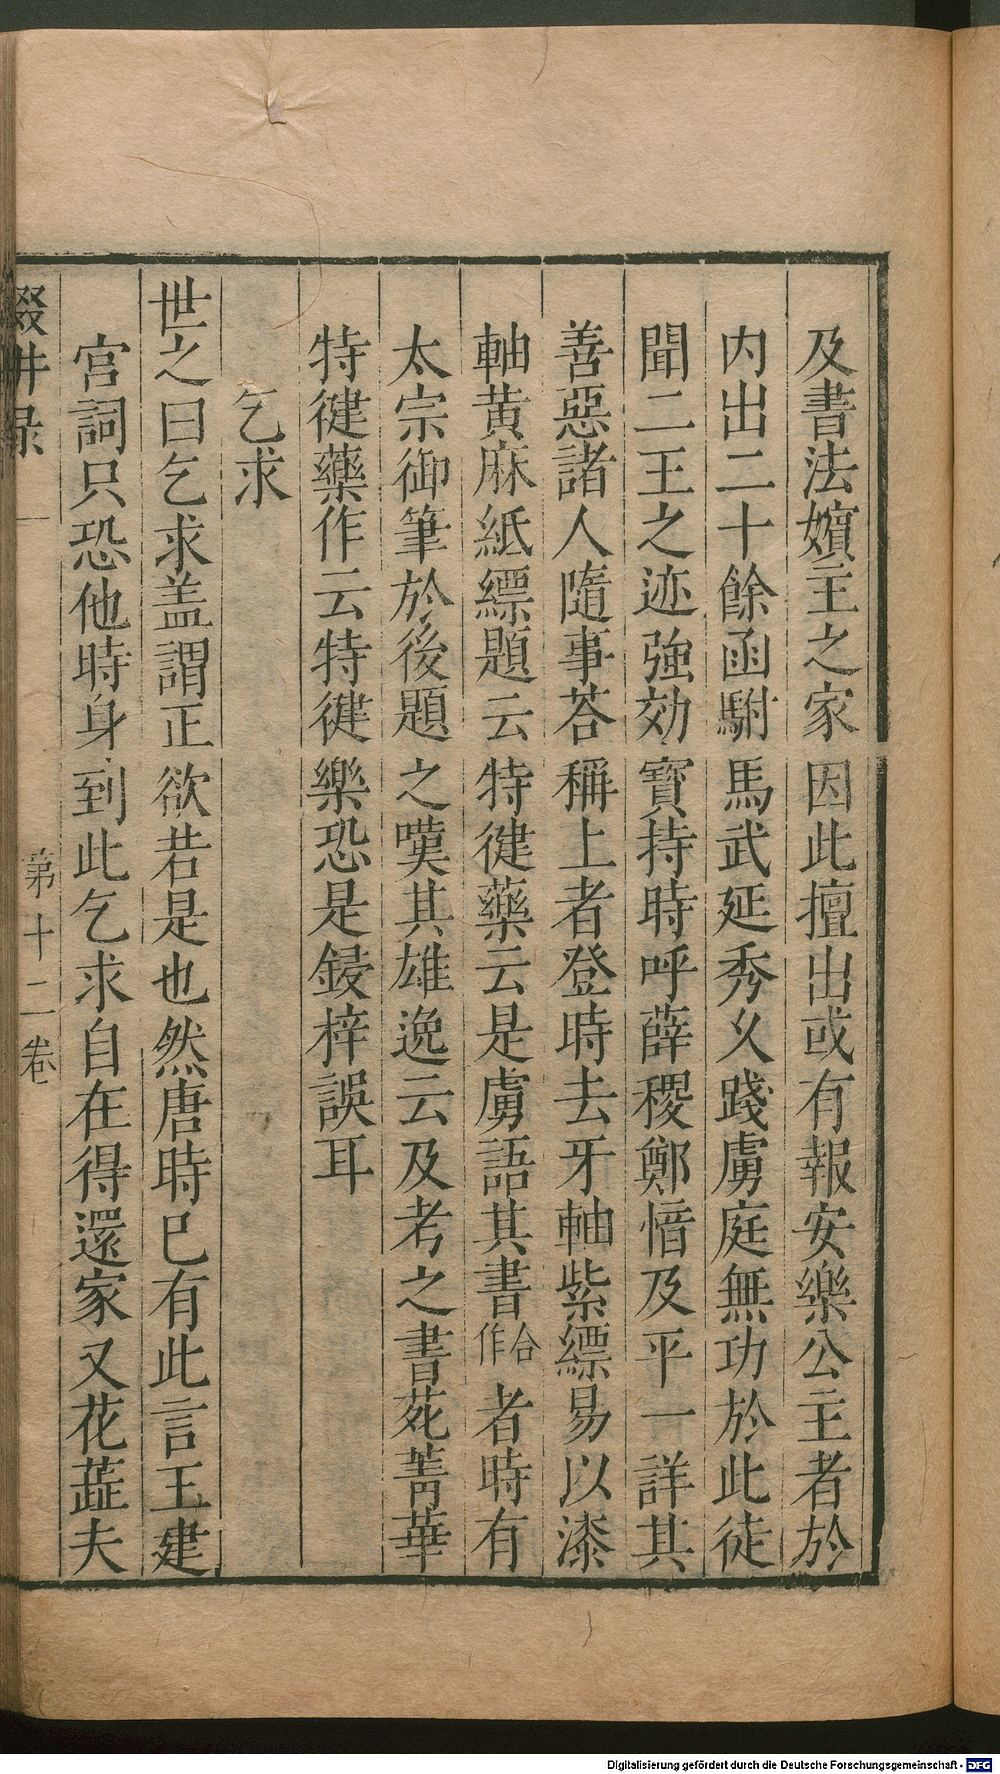 及書法嬪主之家因此擅出或有報安樂公主者於
内出二十餘函駙馬武延秀乆踐虜庭無功於此徒
聞二王之迹強効寶持時呼薛稷鄭愔及平一詳其
善惡諸人隨事荅稱上者登時去牙軸紫縹易以漆
軸黄麻紙縹題云特健藥云是虜語其書合作者時有
太宗御筆於後題之嘆其雄逸云及考之書苑菁華
特健藥作云特健樂恐是鋟梓誤耳
乞求
世之曰乞求盖謂正欲若是也然唐時已有此言王建
宫詞只恐他時身到此乞求自在得還家又花蕋夫
輟畊录
第十二卷
Digitalisierung gefördert durch die Deutsche Forschungsgemeinschaft - DFG